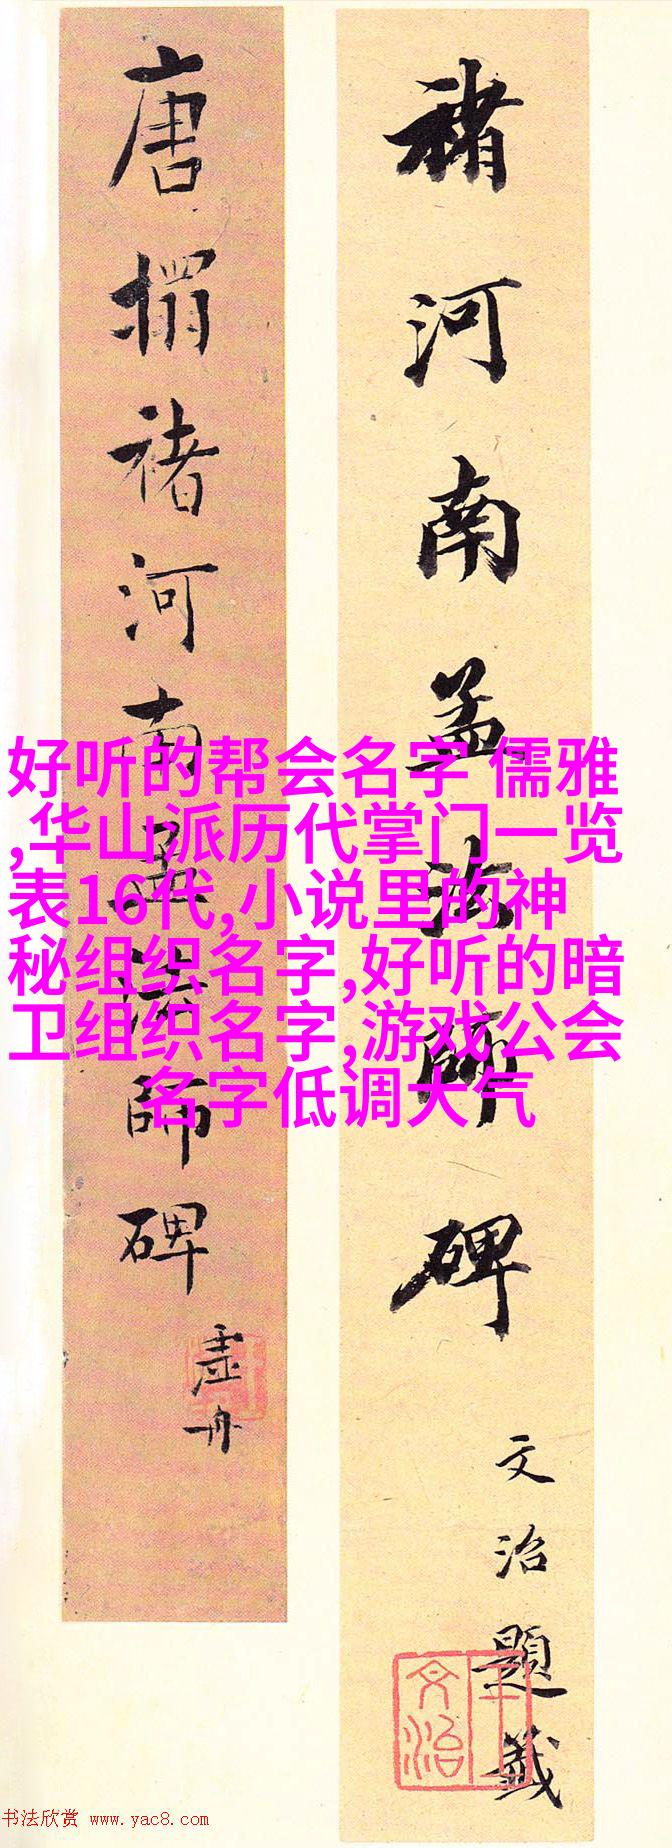 褚河南孟法師碑
文治題籤
王文治
唐搨褚河南孟法師碑
虛舟
好听的帮会名字 儒雅
,华山派历代掌门一览
表16代,小说里的神
秘组织名字,好听的暗
卫组织名字,游戏公会
名字低调大气
书法欣赏 www.yac8.com